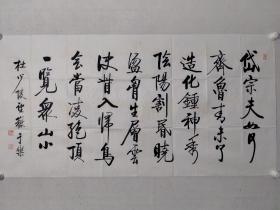 岱宗夫如何
齊魯青未了
造化鍾神秀
陰陽割昏曉
盪胸生層雲
决眥入歸鳥
會當凌絕頂
一覽衆山小
杜少陵望